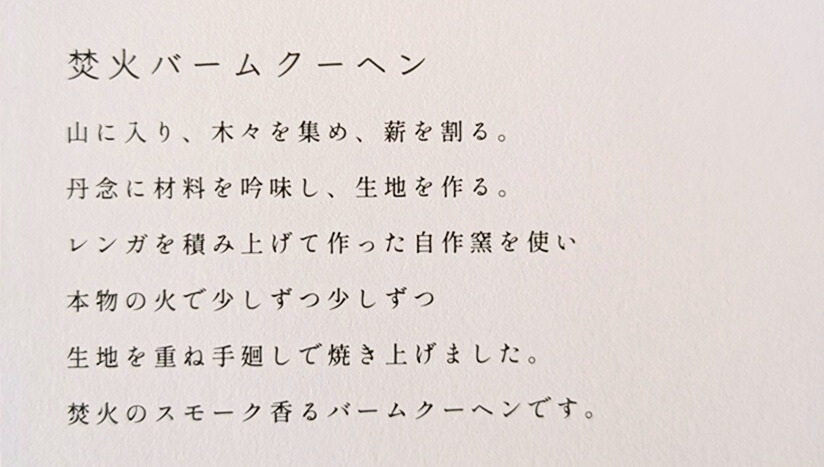 焚火バームクーヘン
山に入り、木々を集め、薪を割る。
丹念に材料を吟味し、生地を作る。
レンガを積み上げて作った自作窯を使い
本物の火で少しずつ少しずつ
生地を重ね手廻しで焼き上げました。
焚火のスモーク香るバームクーヘンです。